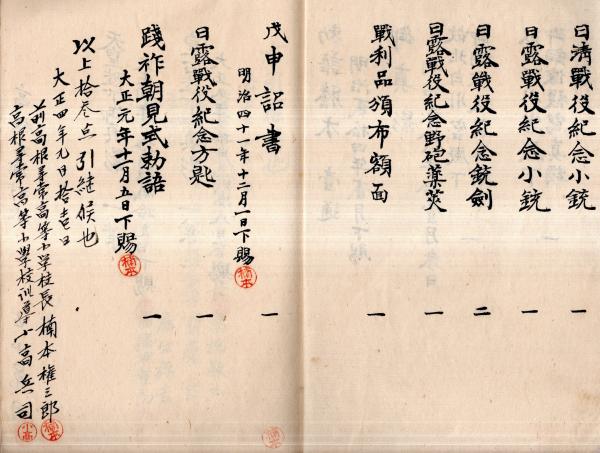 日清戰役紀念小銃 一
日露戰役紀念小銃 一
日露戰役紀念銃劍 二
日露戰役紀念野砲藥莢 一
戰利品頒布額面 一
戊申詔書 一
明治四十一年十二月一日下賜
日露戰役紀念方匙 一
踐祚朝見式勅語 一
大正元年十二月五日下賜
以上拾叁点引継候也
大正四年九月拾壱日
前高根尋常高等小学校長 楠本権三郎
高根尋常高等小學校訓導 小高兵司